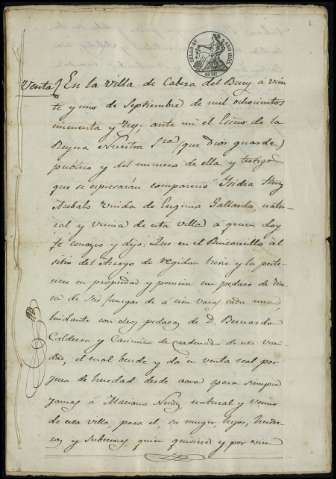 Venta / En la Villa de Cabeza del Buey a vein
te y uno de Septiembre de mil ochocientos
cincuenta y tres: ante mi el Escno de la
Reyna Nuestra Sra (que Dios guarde)
publico y del numero de ella y testigos
que se espresarán comparecio Isidra Ruiz
viuda de Eugenio Gallardo, natu
ral y vecina de esta villa a quien doy
fe conozco y dijo: Que en el al
sitio del Arroyo de tiene y la perte
nece en propiedad y posesion un pedazo de tier
ra de tres fanegas de a cada una
lindante con otros pedazos de D. Bernardo
Calderon y Camino de de esta vecin
dad, el cual vende y da en venta real por
juro de heredad desde ahora para siempre
jamas a Mariano natural y vecino
de esta villa, para el, su muger, hijos, herede
ros y subcesores quien